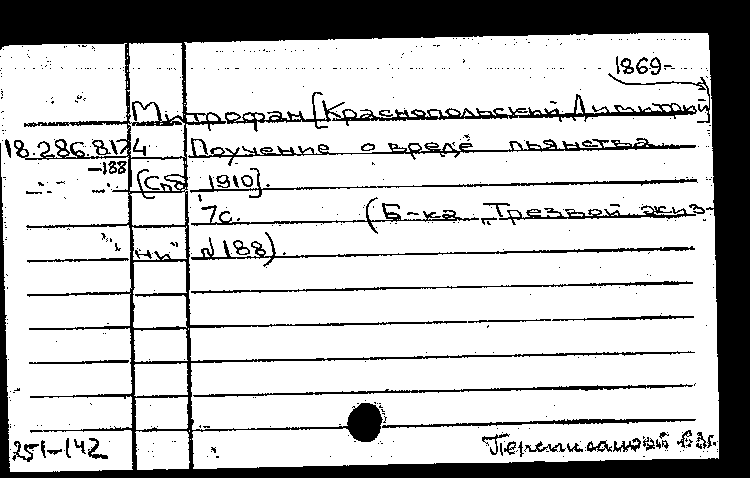 1869-
Митрофан [Краснопольский Димитрий]
18.286.8.174 Поучение о вреде пьянства
-188 [Спб 1910].
7с. (Б-ка „Трезвой жиз-
ни" №188).
251-142